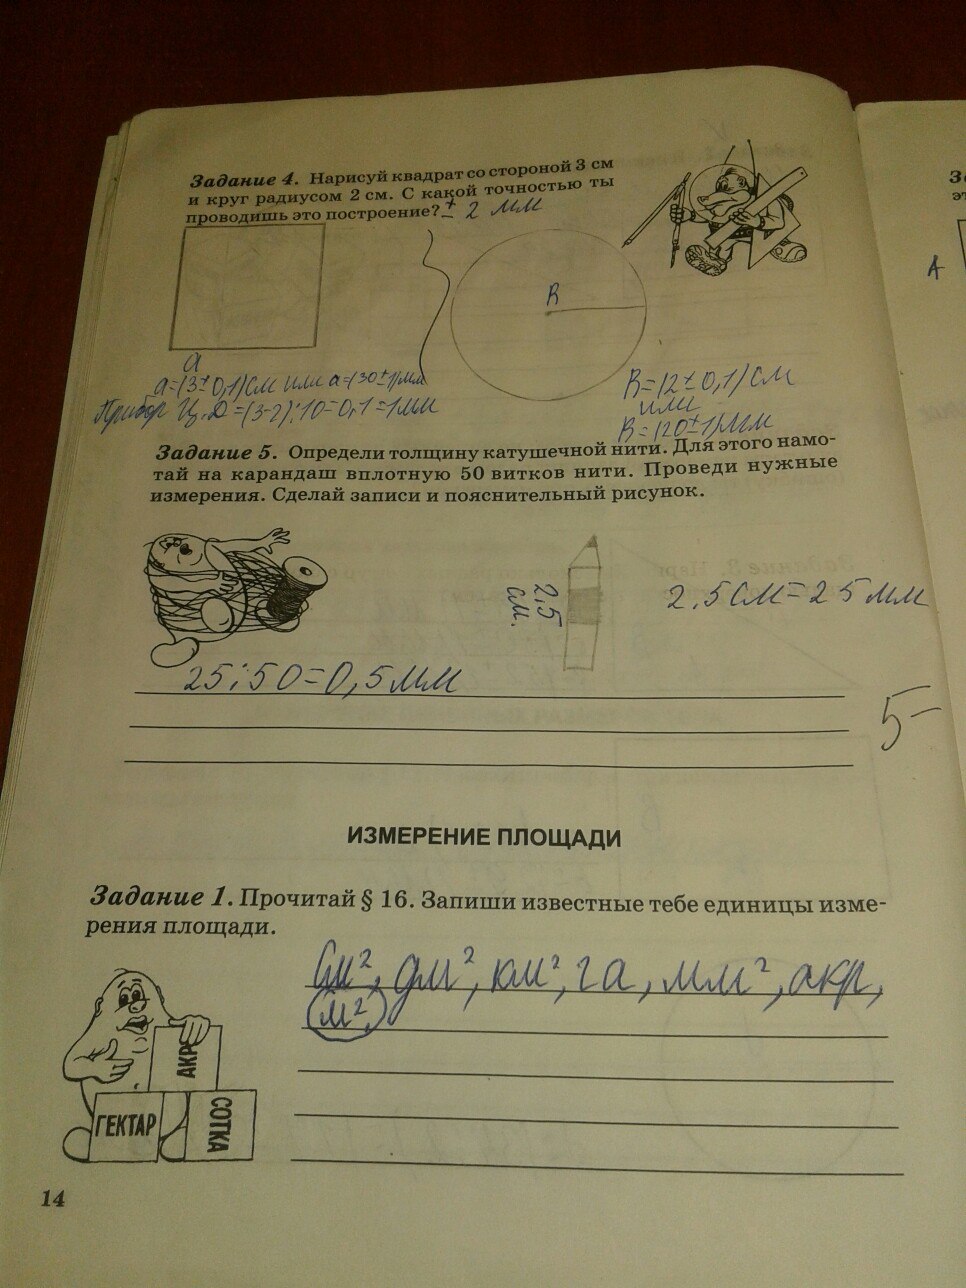 Задание 4. Нарисуй квадрат со стороной 3 см
и круг радиусом 2 см. С какой точностью ты
проводишь это построение? ± 2 мм
R
a
a=(3±0,1)см или a=(30±1)мм
Прибор Ц.Д=(3-2):10=0,1=1мм
R=(2±0,1)см
или
R=(20±1)мм
Задание 5. Определи толщину катушечной нити. Для этого намо-
тай на карандаш вплотную 50 витков нити. Проведи нужные
измерения. Сделай записи и пояснительный рисунок.
2,5
см.
2,5см=25мм
25:50=0,5мм
5-
ИЗМЕРЕНИЕ ПЛОЩАДИ
Задание 1. Прочитай § 16. Запиши известные тебе единицы изме-
рения площади.
См², дм², км², га, мм², акр,
м²
АКР
ГЕКТАР
СОТКА
14
А